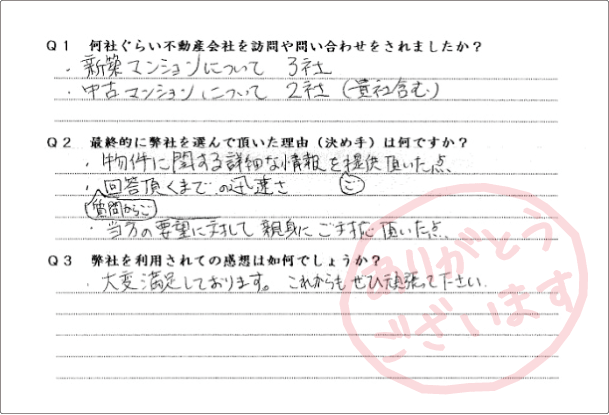 Q1 何社ぐらい不動産会社を訪問や問い合わせをされましたか？
・新築マンションについて 3社
・中古マンションについて 2社（貴社含む）
Q2 最終的に弊社を選んで頂いた理由（決め手）は何ですか？
・物件に関する詳細な情報を提供頂いた点
・回答頂くまでの迅速さ
ご
質問からご
・当方の要望に対して親身にご対応頂いた点
Q3 弊社を利用されての感想は如何でしょうか？
・大変満足しております。これからもぜひ頑張って下さい。
ありがとう
ございます